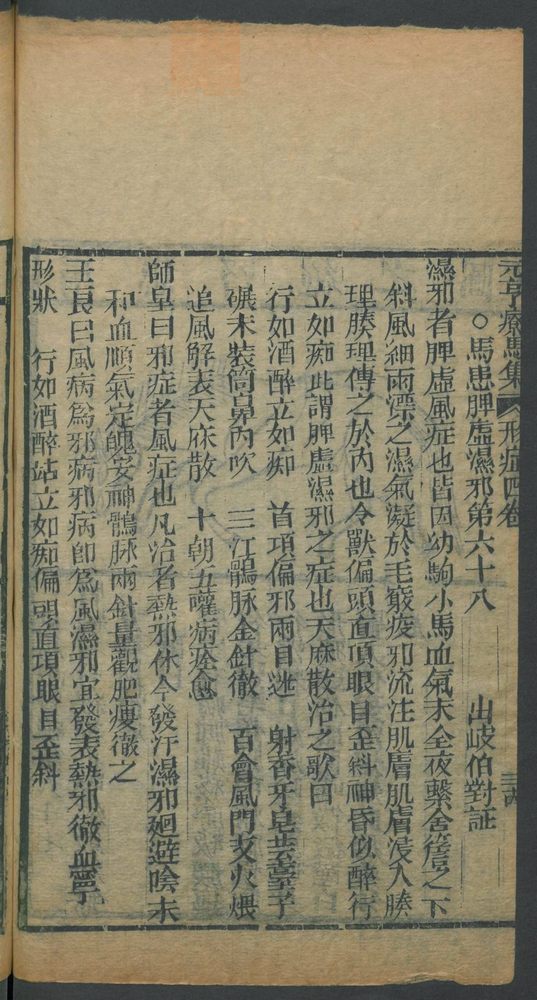 元亨療馬集 形症四卷
○馬患脾虛濕邪第六十八 出岐伯對証
濕邪者脾虛風症也皆因幼駒小馬血氣未全夜繫舍簷之下
斜風細雨慓之濕氣凝於毛竅疫邪流注肌膚肌膚浸入腠
理腠理傳之於內也令獸偏頭直項眼目歪斜神昏似醉行
立如痴此謂脾虛濕邪之症也天麻散治之歌曰
行如酒醉立如痴 首項偏邪兩目迷 射香牙皂
碾末裝筒鼻內吹 三江鶻脉金針徹 百會風門艾火煨
追風解表天麻散 十朝五噻病痊愈
師皇曰邪症者風症也凡治者熱邪休令發汗濕邪廻避喰未
和血順氣定魄安神鶻脉兩針量觀肥瘦徹之
王良曰風病爲邪病邪病卽爲風濕邪宜發表熱邪徹血寧
形狀 行如酒醉站立如痴偏頭直項眼目歪斜